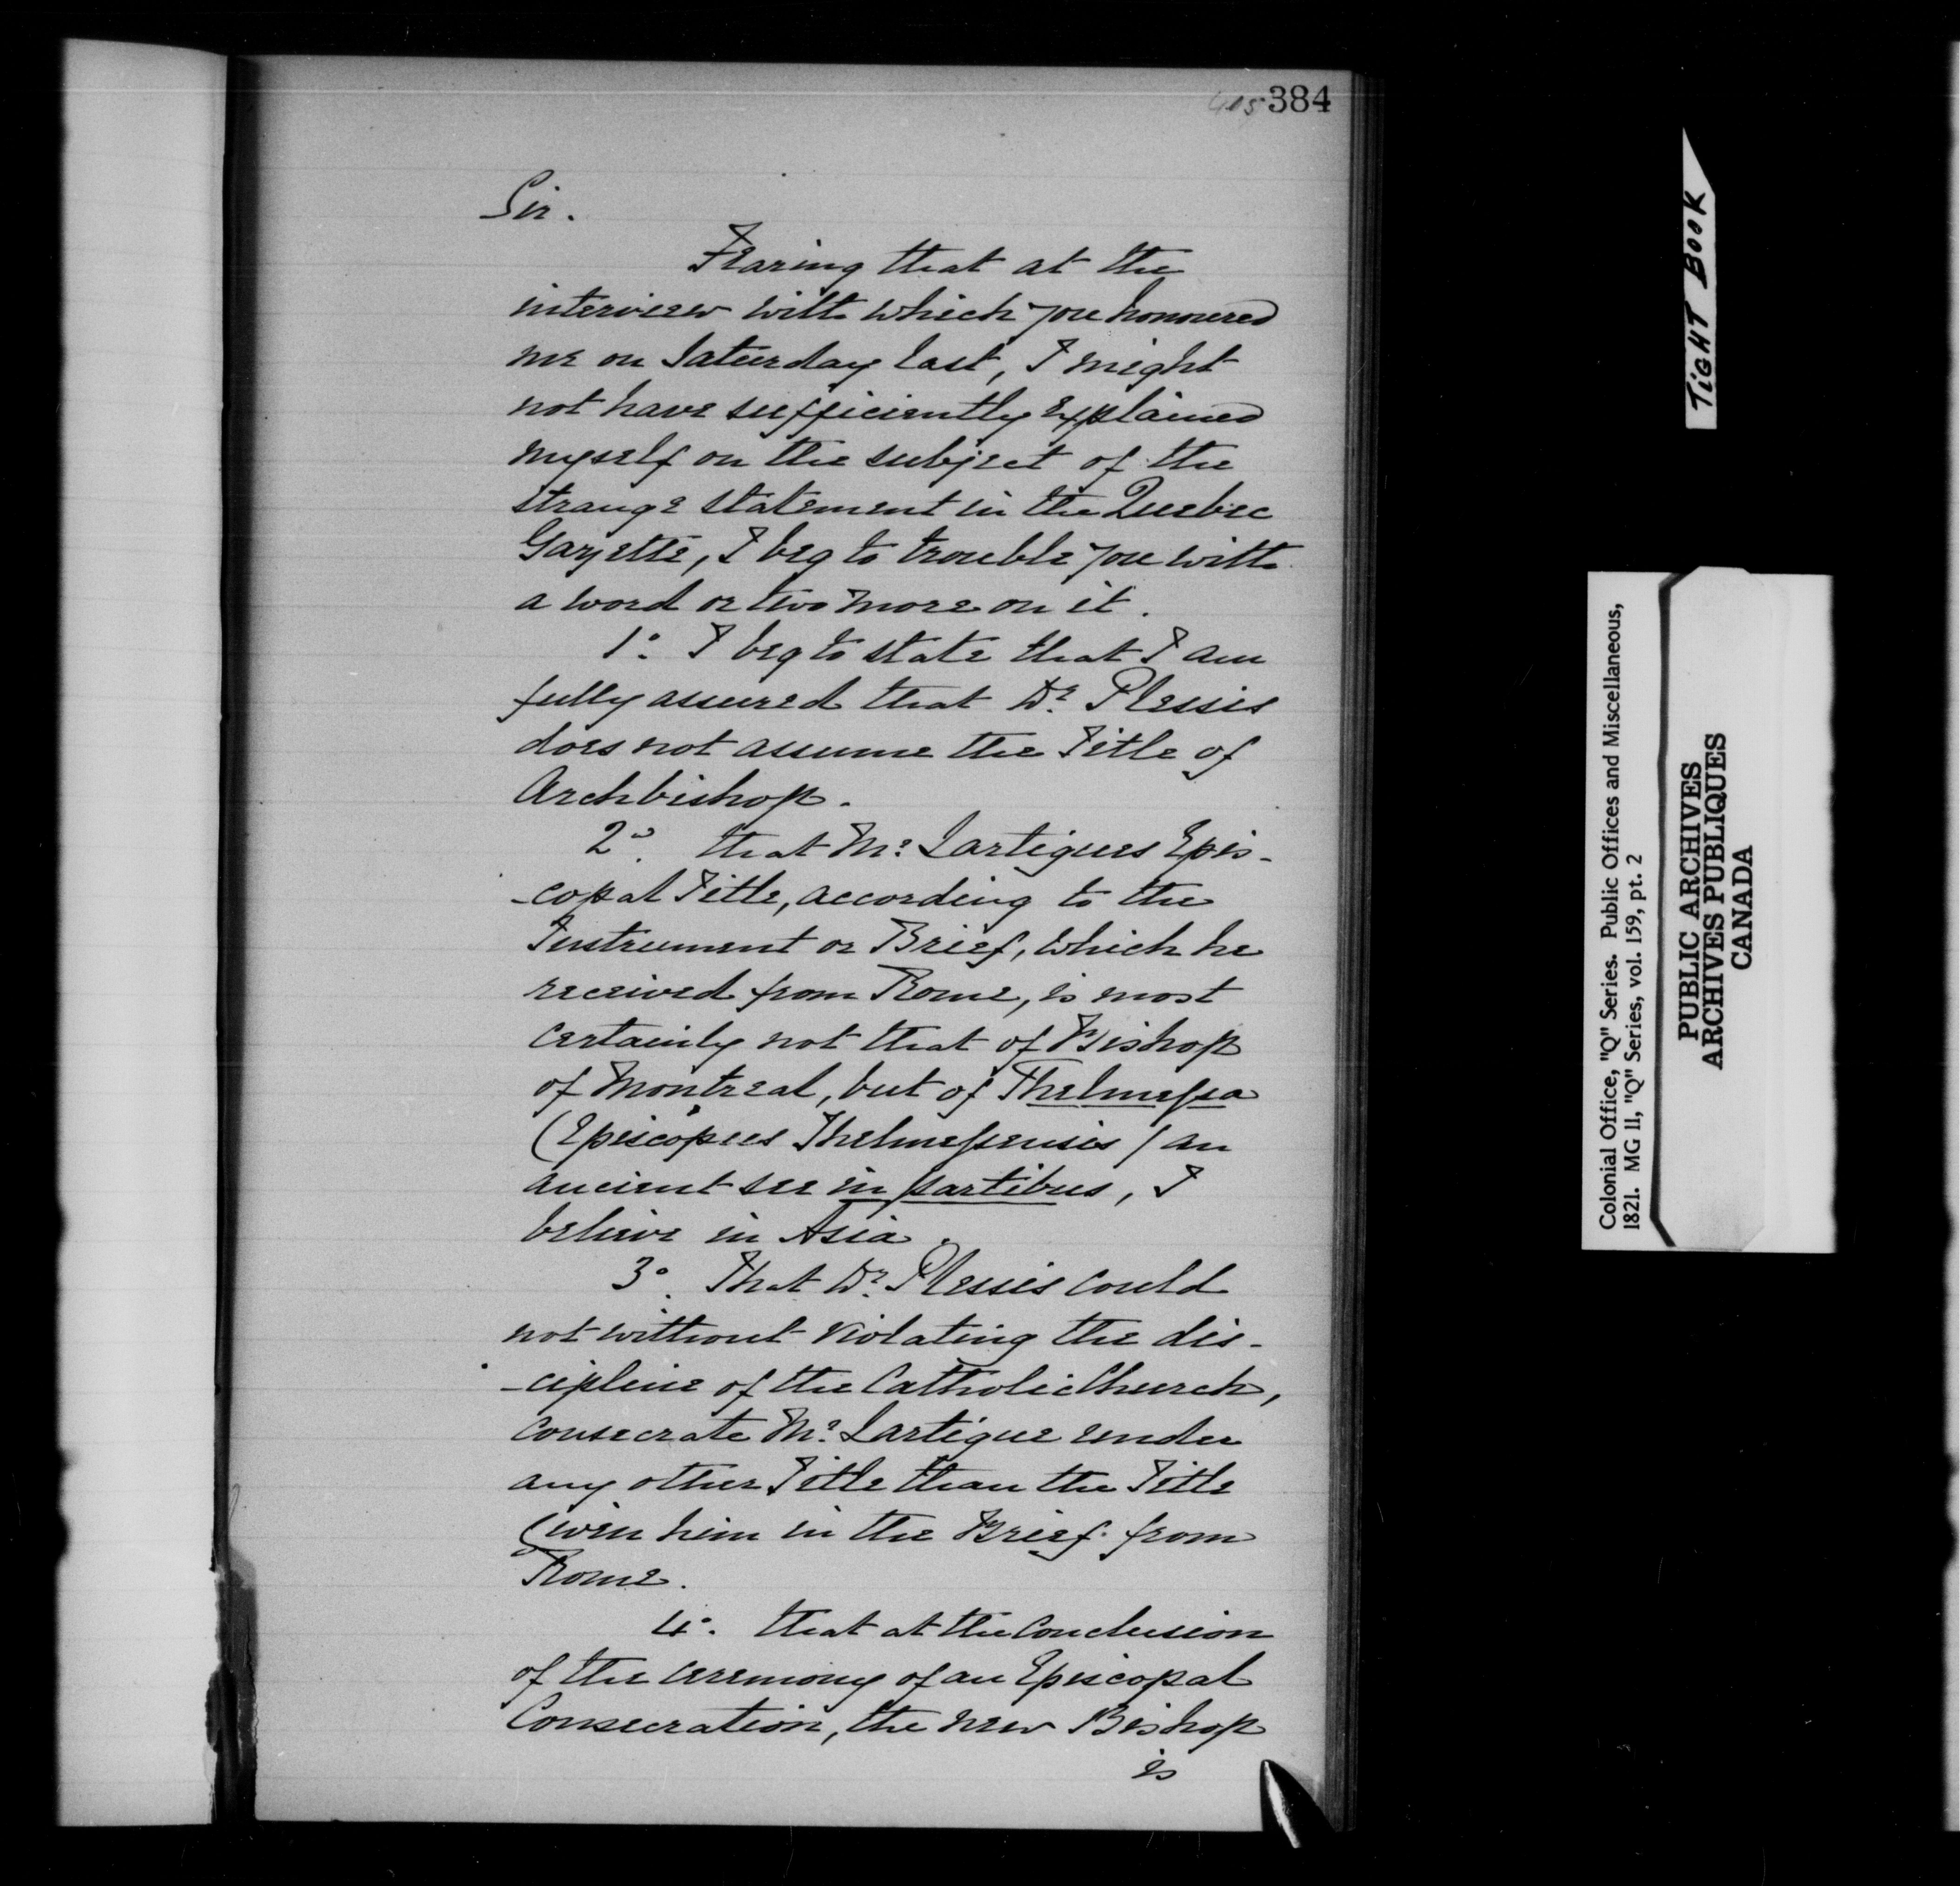 405 384
Sir.
Fearing that at the
interview with which you honoured
me on Saturday last, I might
not have sufficiently explained
myself on the subject of the
strange statement in the Quebec
Gazette, I beg to trouble you with
a word or two more on it.
1º. I beg to state that I am
fully assured that Dr. Plessis
does not assume the Title of
Archbishop.
2º. that Mr. Lartigues Epis-
-copal Title, according to the
Instrument or Brief, which he
received from Rome, is most
certainly not that of Bishop
of Montreal, but of Thelmessa
(Episcopus Thelmessensis) an
ancient see in partibus, I
believe in Asia.
3º. That Dr. Plessis could
not without violating the dis-
-cipline of the Catholic Church,
consecrate Mr. Lartigue under
any other Title than the Title
given him in the Brief from
Rome.
4º. that at the conclusion
of the ceremony of an Episcopal
Consecration, the new Bishop
is
TIGHT BOOK
Colonial Office, "Q" Series. Public Offices and Miscellaneous,
1821. MG 11, "Q" Series, vol. 159, pt. 2
PUBLIC ARCHIVES
ARCHIVES PUBLIQUES
CANADA